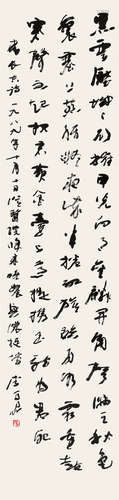 黑雲壓城城欲摧甲光向日金鱗開角聲滿天秋色
裏塞上燕脂凝夜紫半捲紅旗臨易水霜重鼓
寒聲不起報君黃金臺上意提攜玉龍為君死
一九八九年十月一日